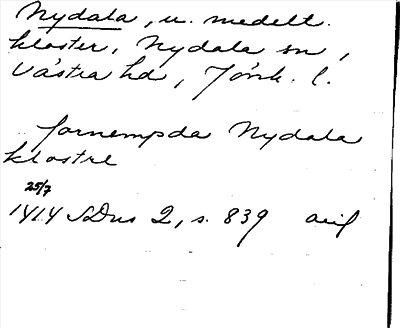 Nydala, u. medelt.
kloster, Nydala sn,
Västra hd, Jönk. l.
fornempda Nydala
klostre
25/7
1414 SDns 2, s. 839 avs